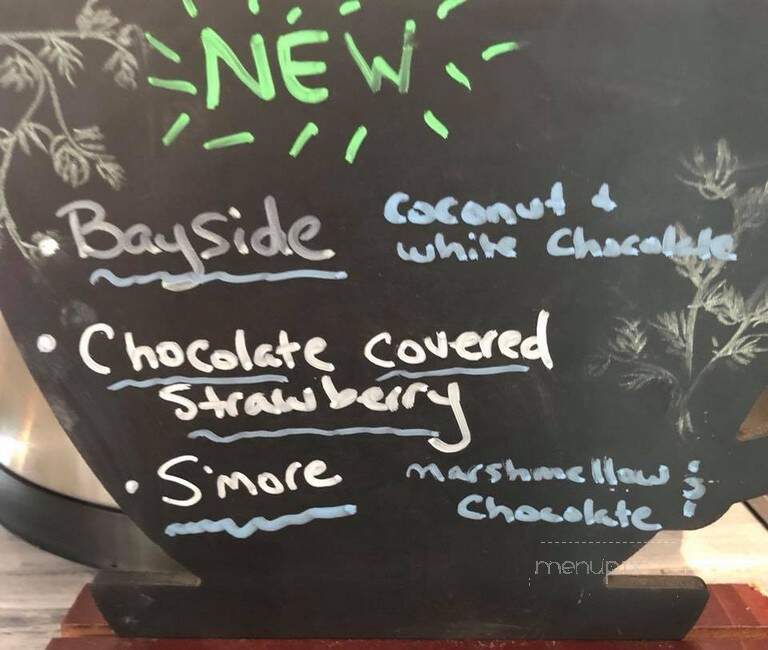 NEW
• Bayside coconut &
white Chocolate
• Chocolate covered
Strawberry
• S'more marshmellow &
Chocolate